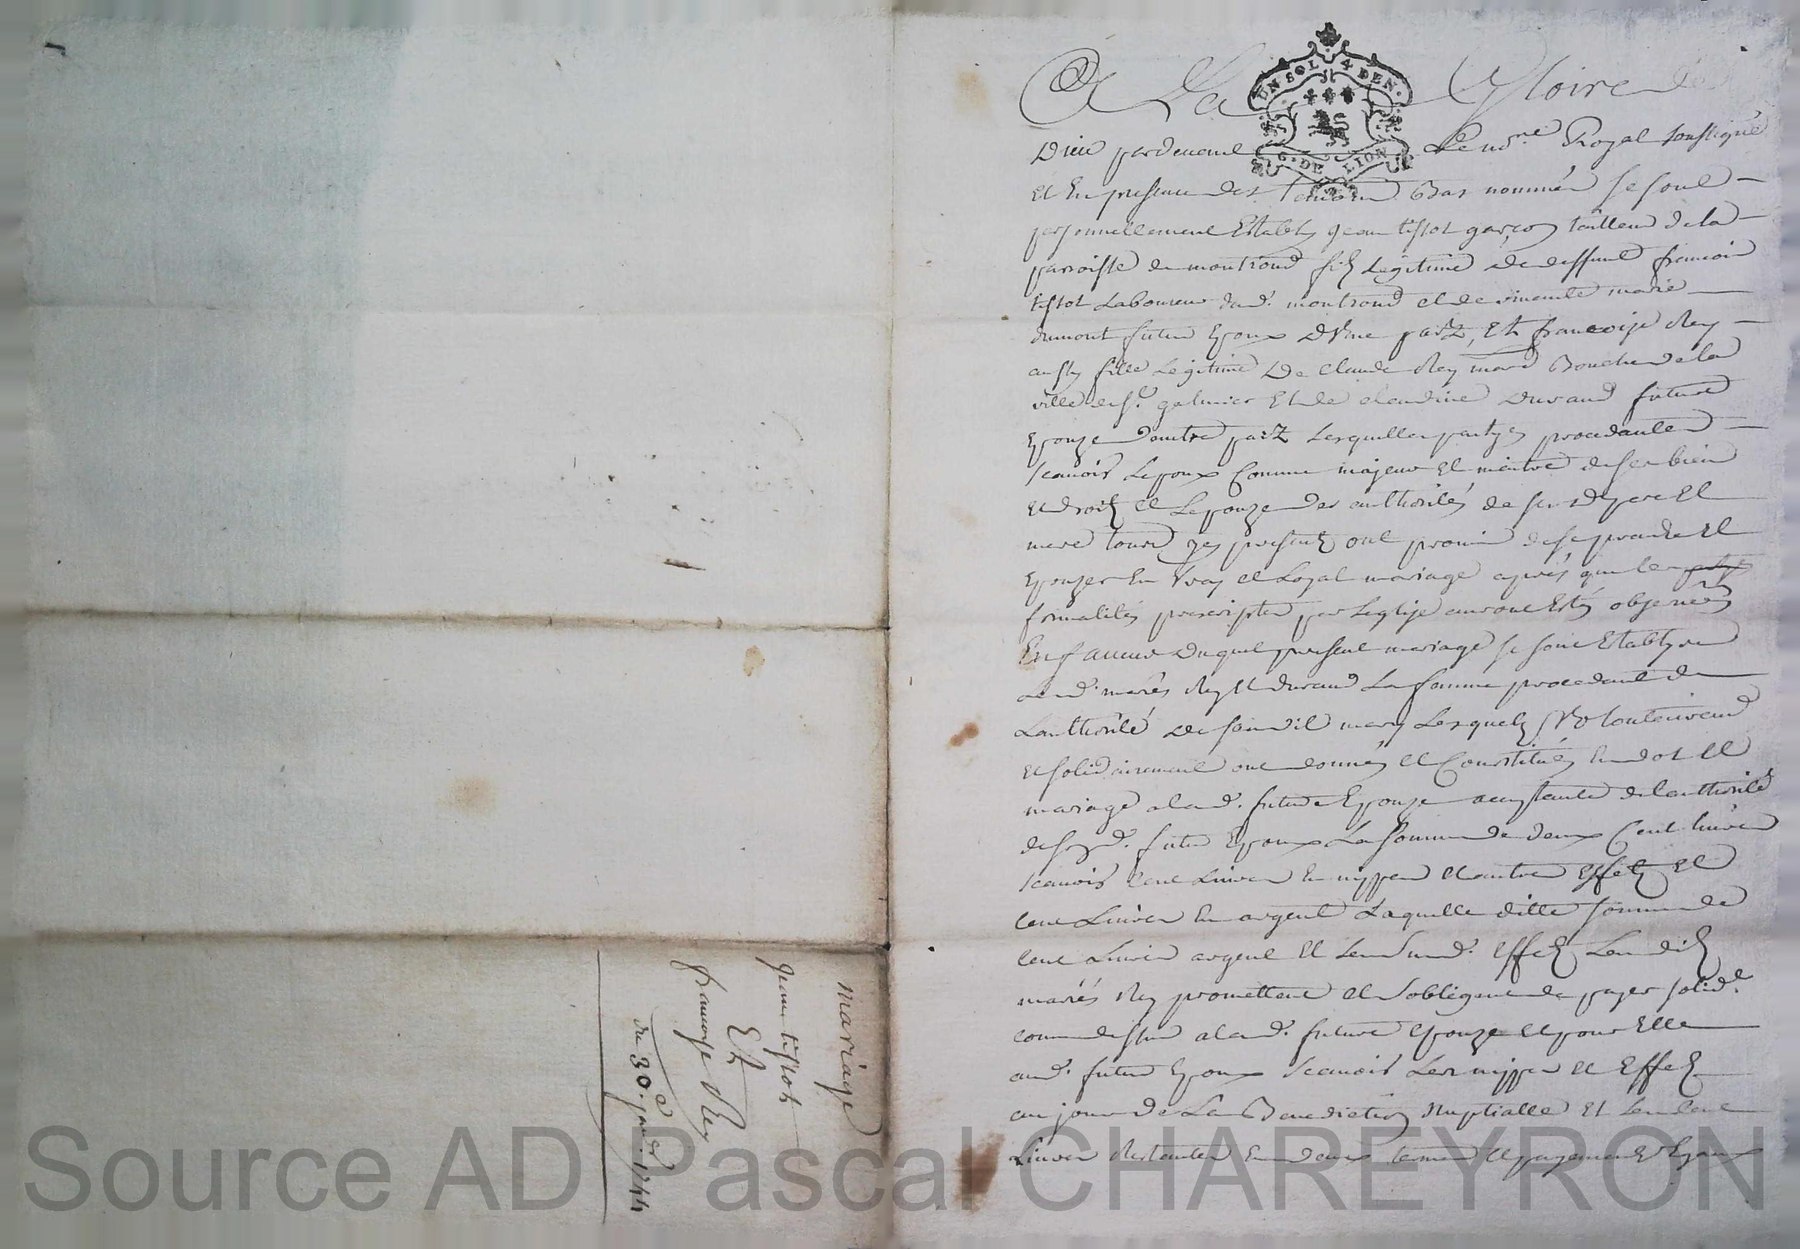 mariage
jean tissot
Et
francoise Rey
du 30.e janvr 1744
A La Gloire de
UN SOL 4 DEN.
G. DE LION
Dieu pardevant Le nore Royal soussigné
Et En presence des temoins Bas nommés se sont
personnellement Establis jean tissot garçon tailleur de la
parroisse de montrond fils Legitime de deffunt francois
tissot Laboureur dud. montrond et de vivante marie
dumont futur Epoux d'Une part, Et francoise Rey
aussy fille Legitime De claude Rey mard Boucher de la
ville de St. galmier Et de claudine Durand future
Epouze d'autre part Lesquelles partyes procedantes
scavoir L'epoux Comme majeur et maitre de ses biens
et droits et L'epouze des authorités de ses d. pere et
mere tous icy presents ont promis de se prendre et
Epouzer En Vray et Loyal mariage après que les
formalités prescriptes par L'eglize auront Estés observées
En faveur duquel present mariage se sont Establys
Lesd. mariés Rey et durand La femme procedante de
L'authorité de sondit mary Lesquels Volontairement
et solidairement ont donnés et Constitués En dot et
mariage a lad. future Epouze acceptante de l'authorité
de sond. futur Epoux La somme de deux Cent Livres
scavoir Cent Livres En nippes et autres Effets et
Cent Livres En argent Laquelle ditte somme de
Cent Livres argent et Lesd. Effets Lesdits
mariés Rey promettent et s'obligent de payer solide
comme dessus a lad. future Epouze et pour Elle
aud. futur Epoux scavoir Les nippes et Effets
au jour de La Benediction Nuptialle Et Les Cent
Livres Restantes En deux termes et payements Egaux
Source AD Pascal CHAREYRON